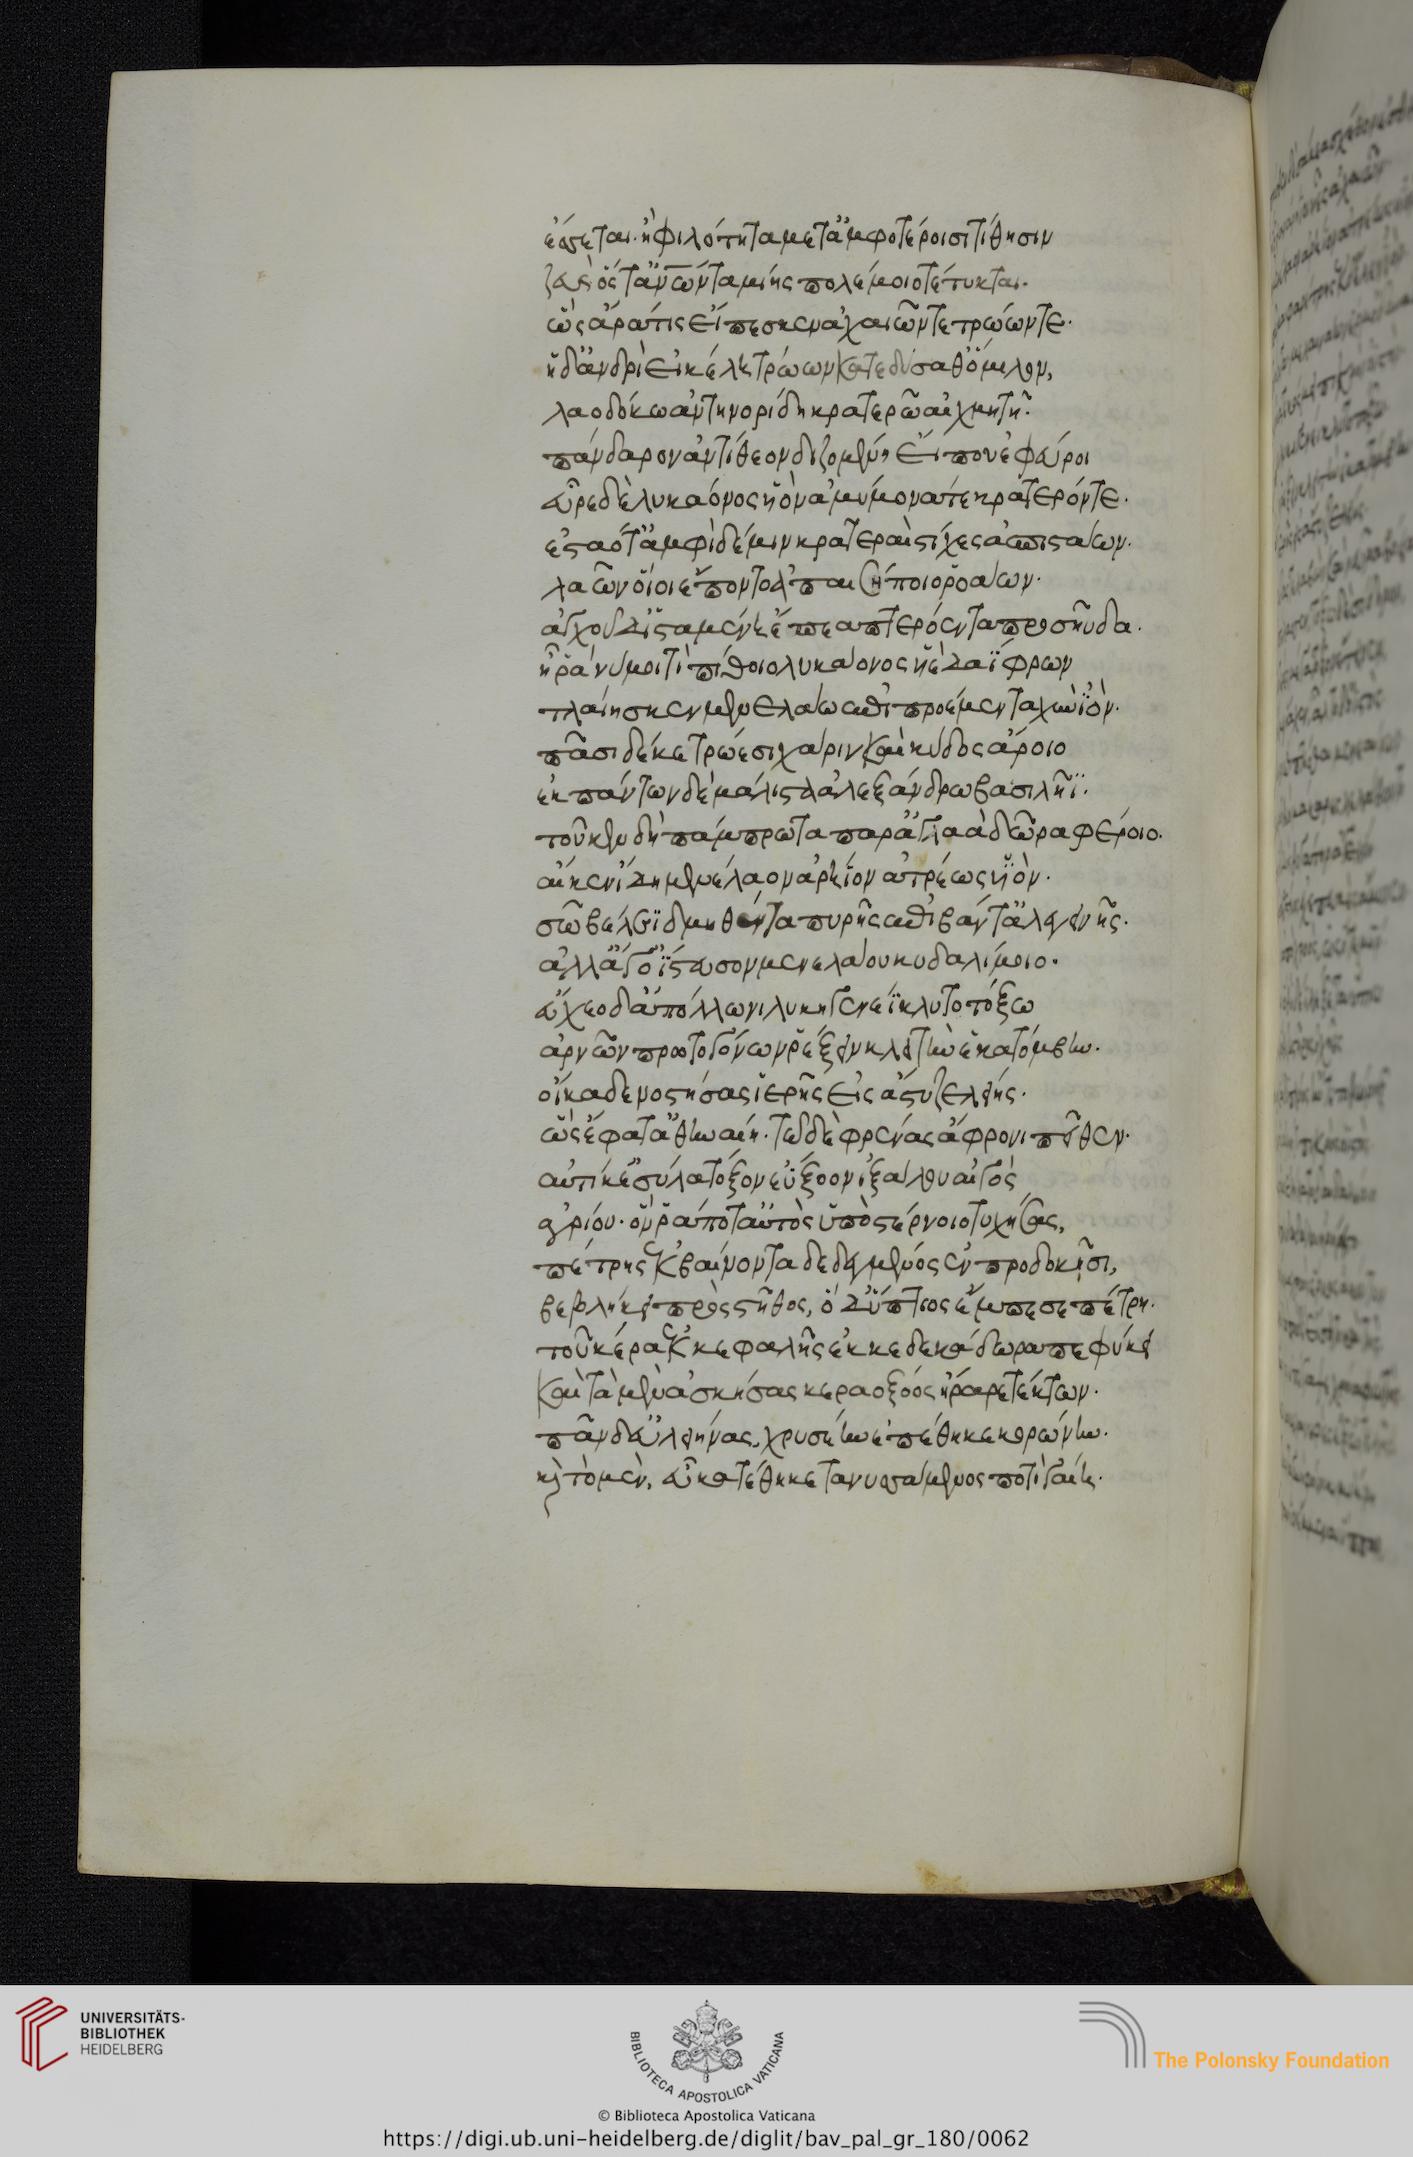 ἔσσεται. ἢ φιλότητα μετ' ἀμφοτέροισι τίθησιν
ζεὺς ὅς τ' ἀνθρώπων ταμίης πολέμοιο τέτυκται.
ὣς ἄρα τίς εἴπεσκεν ἀχαιῶν τε τρώων τε.
ἡ δ' ἀνδρὶ εἰκέλη τρώων κατεδύσαθ' ὅμιλον,
λαοδόκω ἀντηνορίδη κρατερῶ αἰχμητῆ.
πάνδαρον ἀντίθεον διζομένη εἴ που ἐφεύροι
εὗρε δὲ λυκάονος ϋἱὸν ἀμύμονά τε κρατερόν τε.
ἑσταότ' ἀμφὶ δέ μιν κρατεραὶ στίχες ἀσπιστάων.
λαῶν οἵ οἱ ἕποντο ἀπ' αἰσήποιο ῥοάων.
ἀγχοῦ δ' ἱσταμένη ἔπεα πτερόεντα προσηύδα.
ἦ ῥά νύ μοί τι πίθοιο λυκάονος ϋἱὲ δαΐφρων
τλαίης κεν μενελάω ἐπιπροέμεν ταχὺν ϊόν.
πᾶσι δέ κε τρώεσι χάριν καὶ κύδος ἄροιο
ἐκ πάντων δὲ μάλιστα ἀλεξάνδρω βασιλῆϊ.
τοῦ κεν δὴ πάμπρωτα παρ' ἀγλαὰ δῶρα φέροιο.
αἴ κεν ἴδη μενέλαον ἀρήϊον ἀτρέως ϋἱὸν.
σῶ βέλεϊ δμηθέντα πυρῆς ἐπιβάντ' ἀλεγεινῆς.
ἀλλ' ἄγ' ὀΐστευσον μενελάου κυδαλίμοιο.
εὔχεο δ' ἀπόλλωνι λυκηγενέϊ κλυτοτόξω
ἀρνῶν πρωτογόνων ῥέξειν κλειτὴν ἑκατόμβην.
οἴκαδε νοστήσας ἱερῆς εἰς ἄστυ ζελείης.
ὣς ἔφατ' ἀθηναίη. τῶ δὲ φρένας ἄφρονι πεῖθεν.
αὐτίκ' ἐσύλα τόξον εὔξοον ἰξάλου αἰγὸς
ἀγρίου. ὅν ῥά ποτ' αὐτὸς ὑπὸ στέρνοιο τυχήσας,
πέτρης ἐκβαίνοντα δεδεγμένος ἐν προδοκῆσι,
βεβλήκει πρὸς στῆθος, ὁ δ' ὕπτιος ἔμπεσε πέτρη.
τοῦ κέρα ἐκ κεφαλῆς ἑκκαιδεκάδωρα πεφύκει
καὶ τὰ μὲν ἀσκήσας κεραοξόος ἤραρε τέκτων.
πᾶν δ' εὖ λειήνας, χρυσέην ἐπέθηκε κορώνην.
καὶ τὸ μὲν, εὖ κατέθηκε τανυσσάμενος ποτὶ γαίη.
UNIVERSITÄTS-
BIBLIOTHEK
HEIDELBERG
BIBLIOTECA APOSTOLICA VATICANA
The Polonsky Foundation
© Biblioteca Apostolica Vaticana
https://digi.ub.uni-heidelberg.de/diglit/bav_pal_gr_180/0062